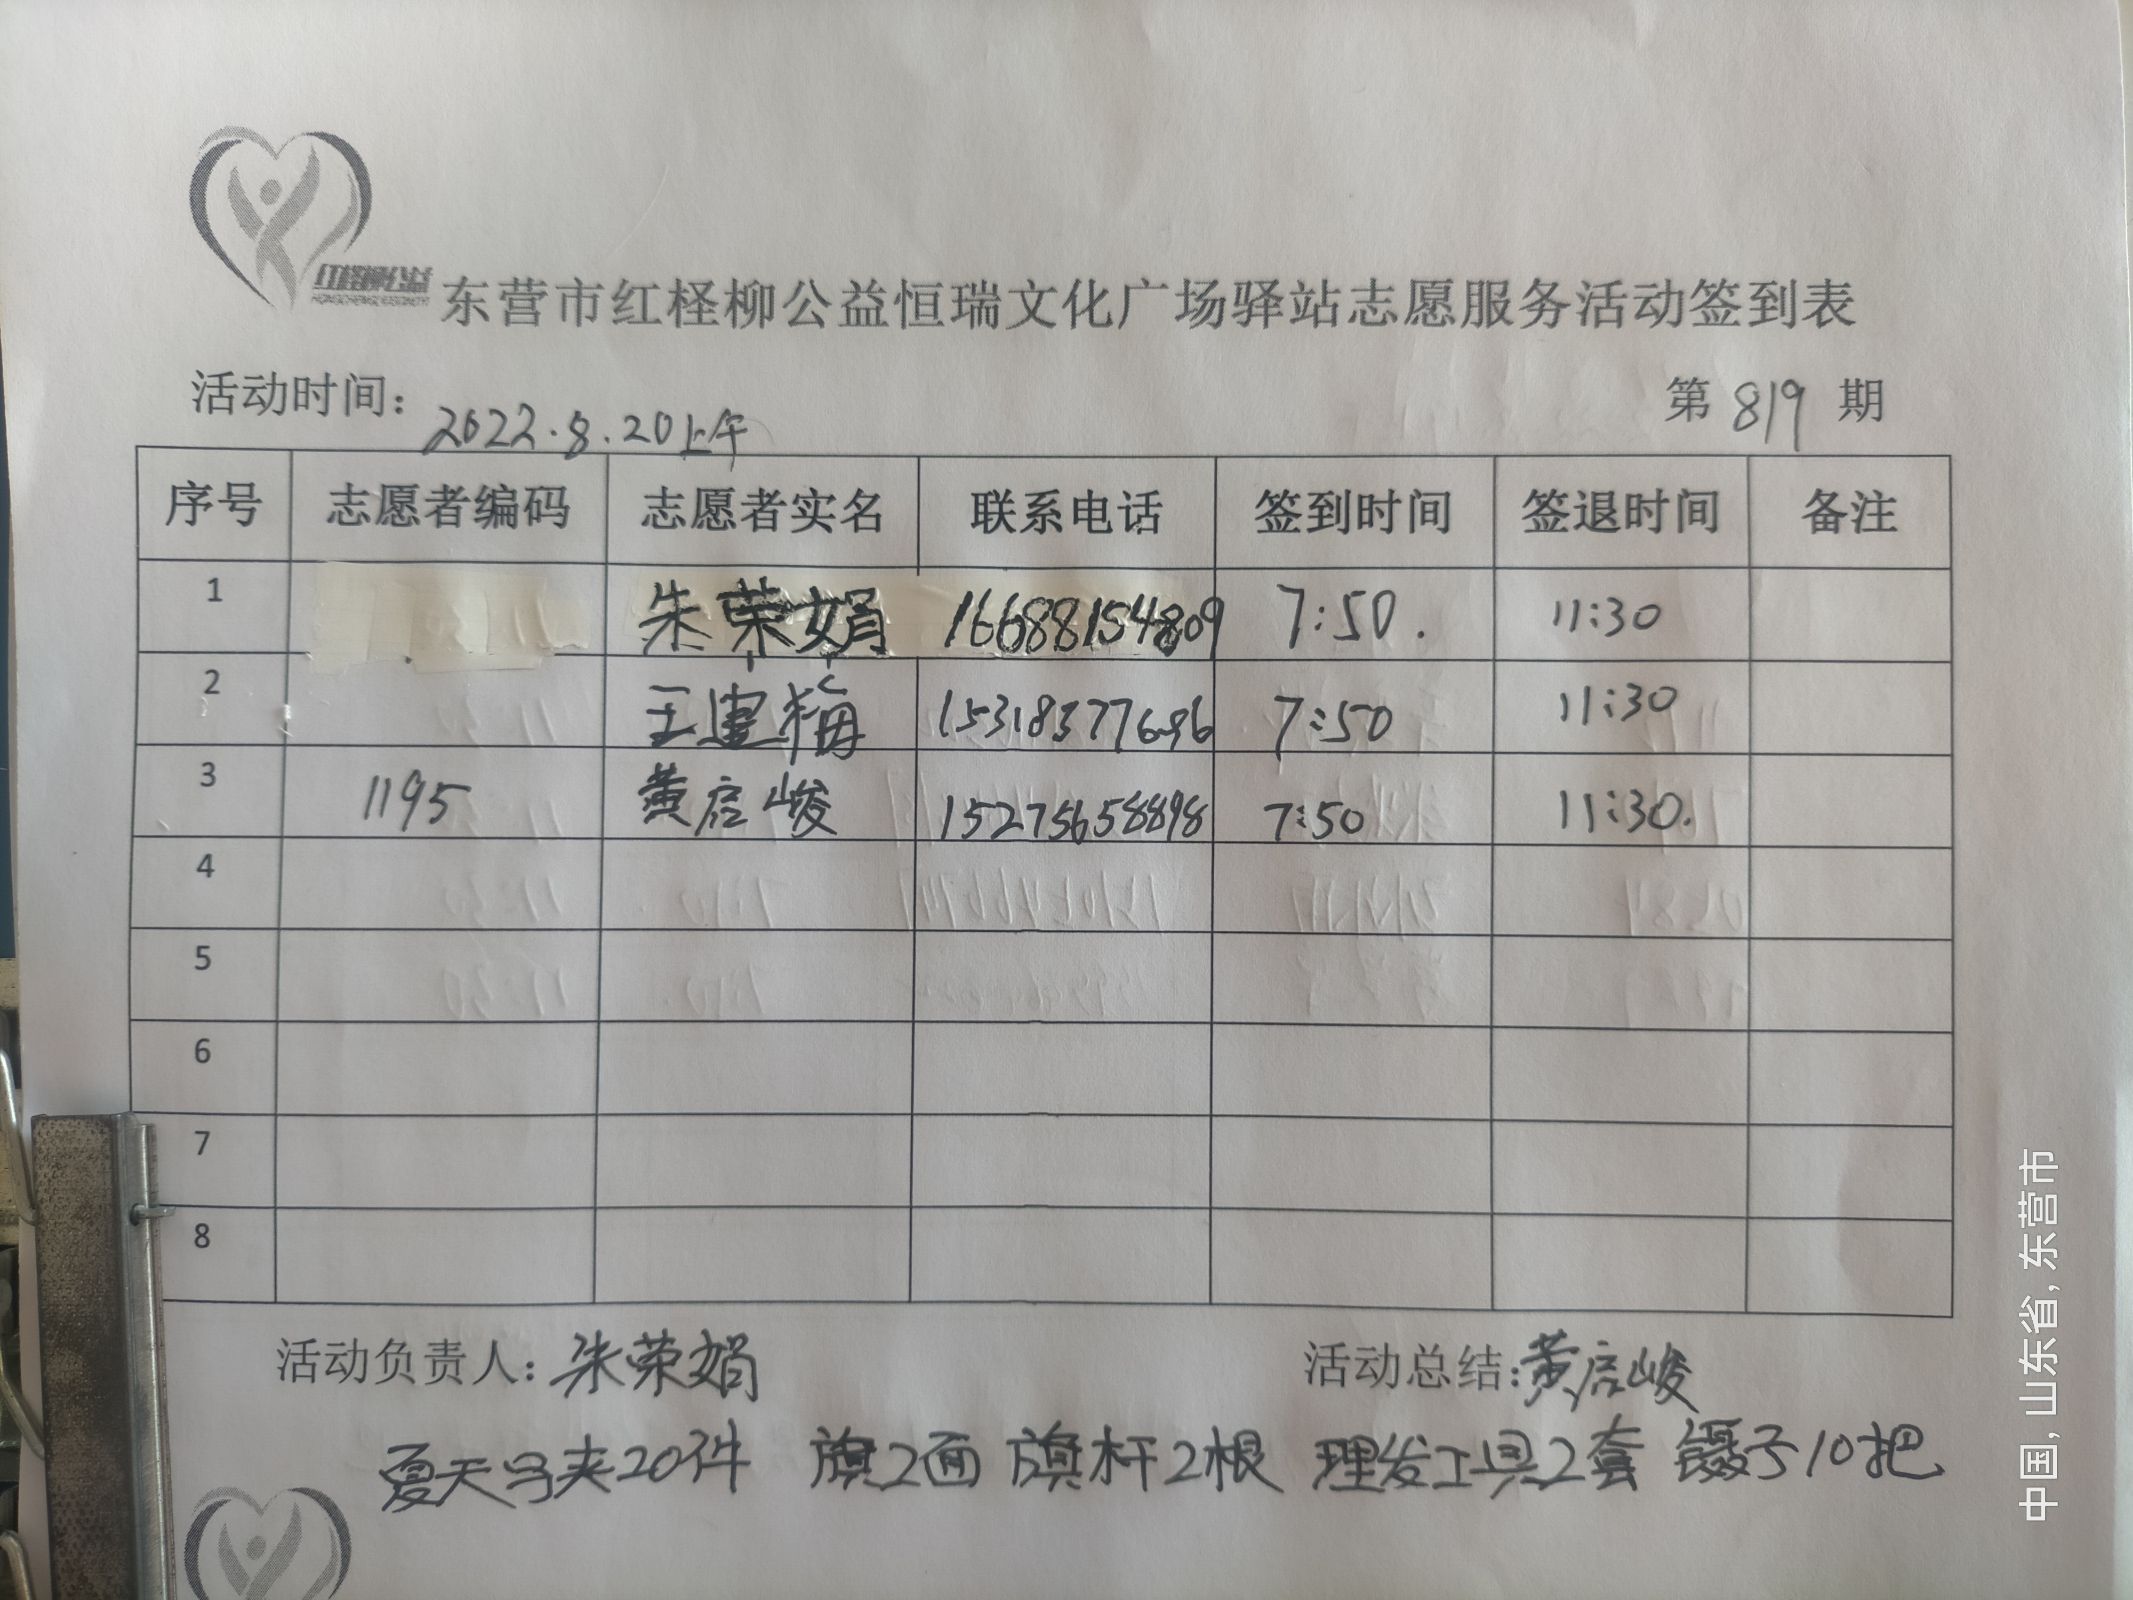 红柽柳公益
东营市红柽柳公益恒瑞文化广场驿站志愿服务活动签到表
活动时间：2022.8.20上午 第 819 期
序号 志愿者编码 志愿者实名 联系电话 签到时间 签退时间 备注
1 朱荣娟 16688154809 7:50. 11:30
2 王建梅 15318377696 7:50 11:30
3 1195 黄启峻 15275658898 7:50 11:30.
4
5
6
7
8
活动负责人：朱荣娟 活动总结：黄启峻
夏天马夹20件 旗2面 旗杆2根 理发工具2套 镊子10把
中国，山东省，东营市